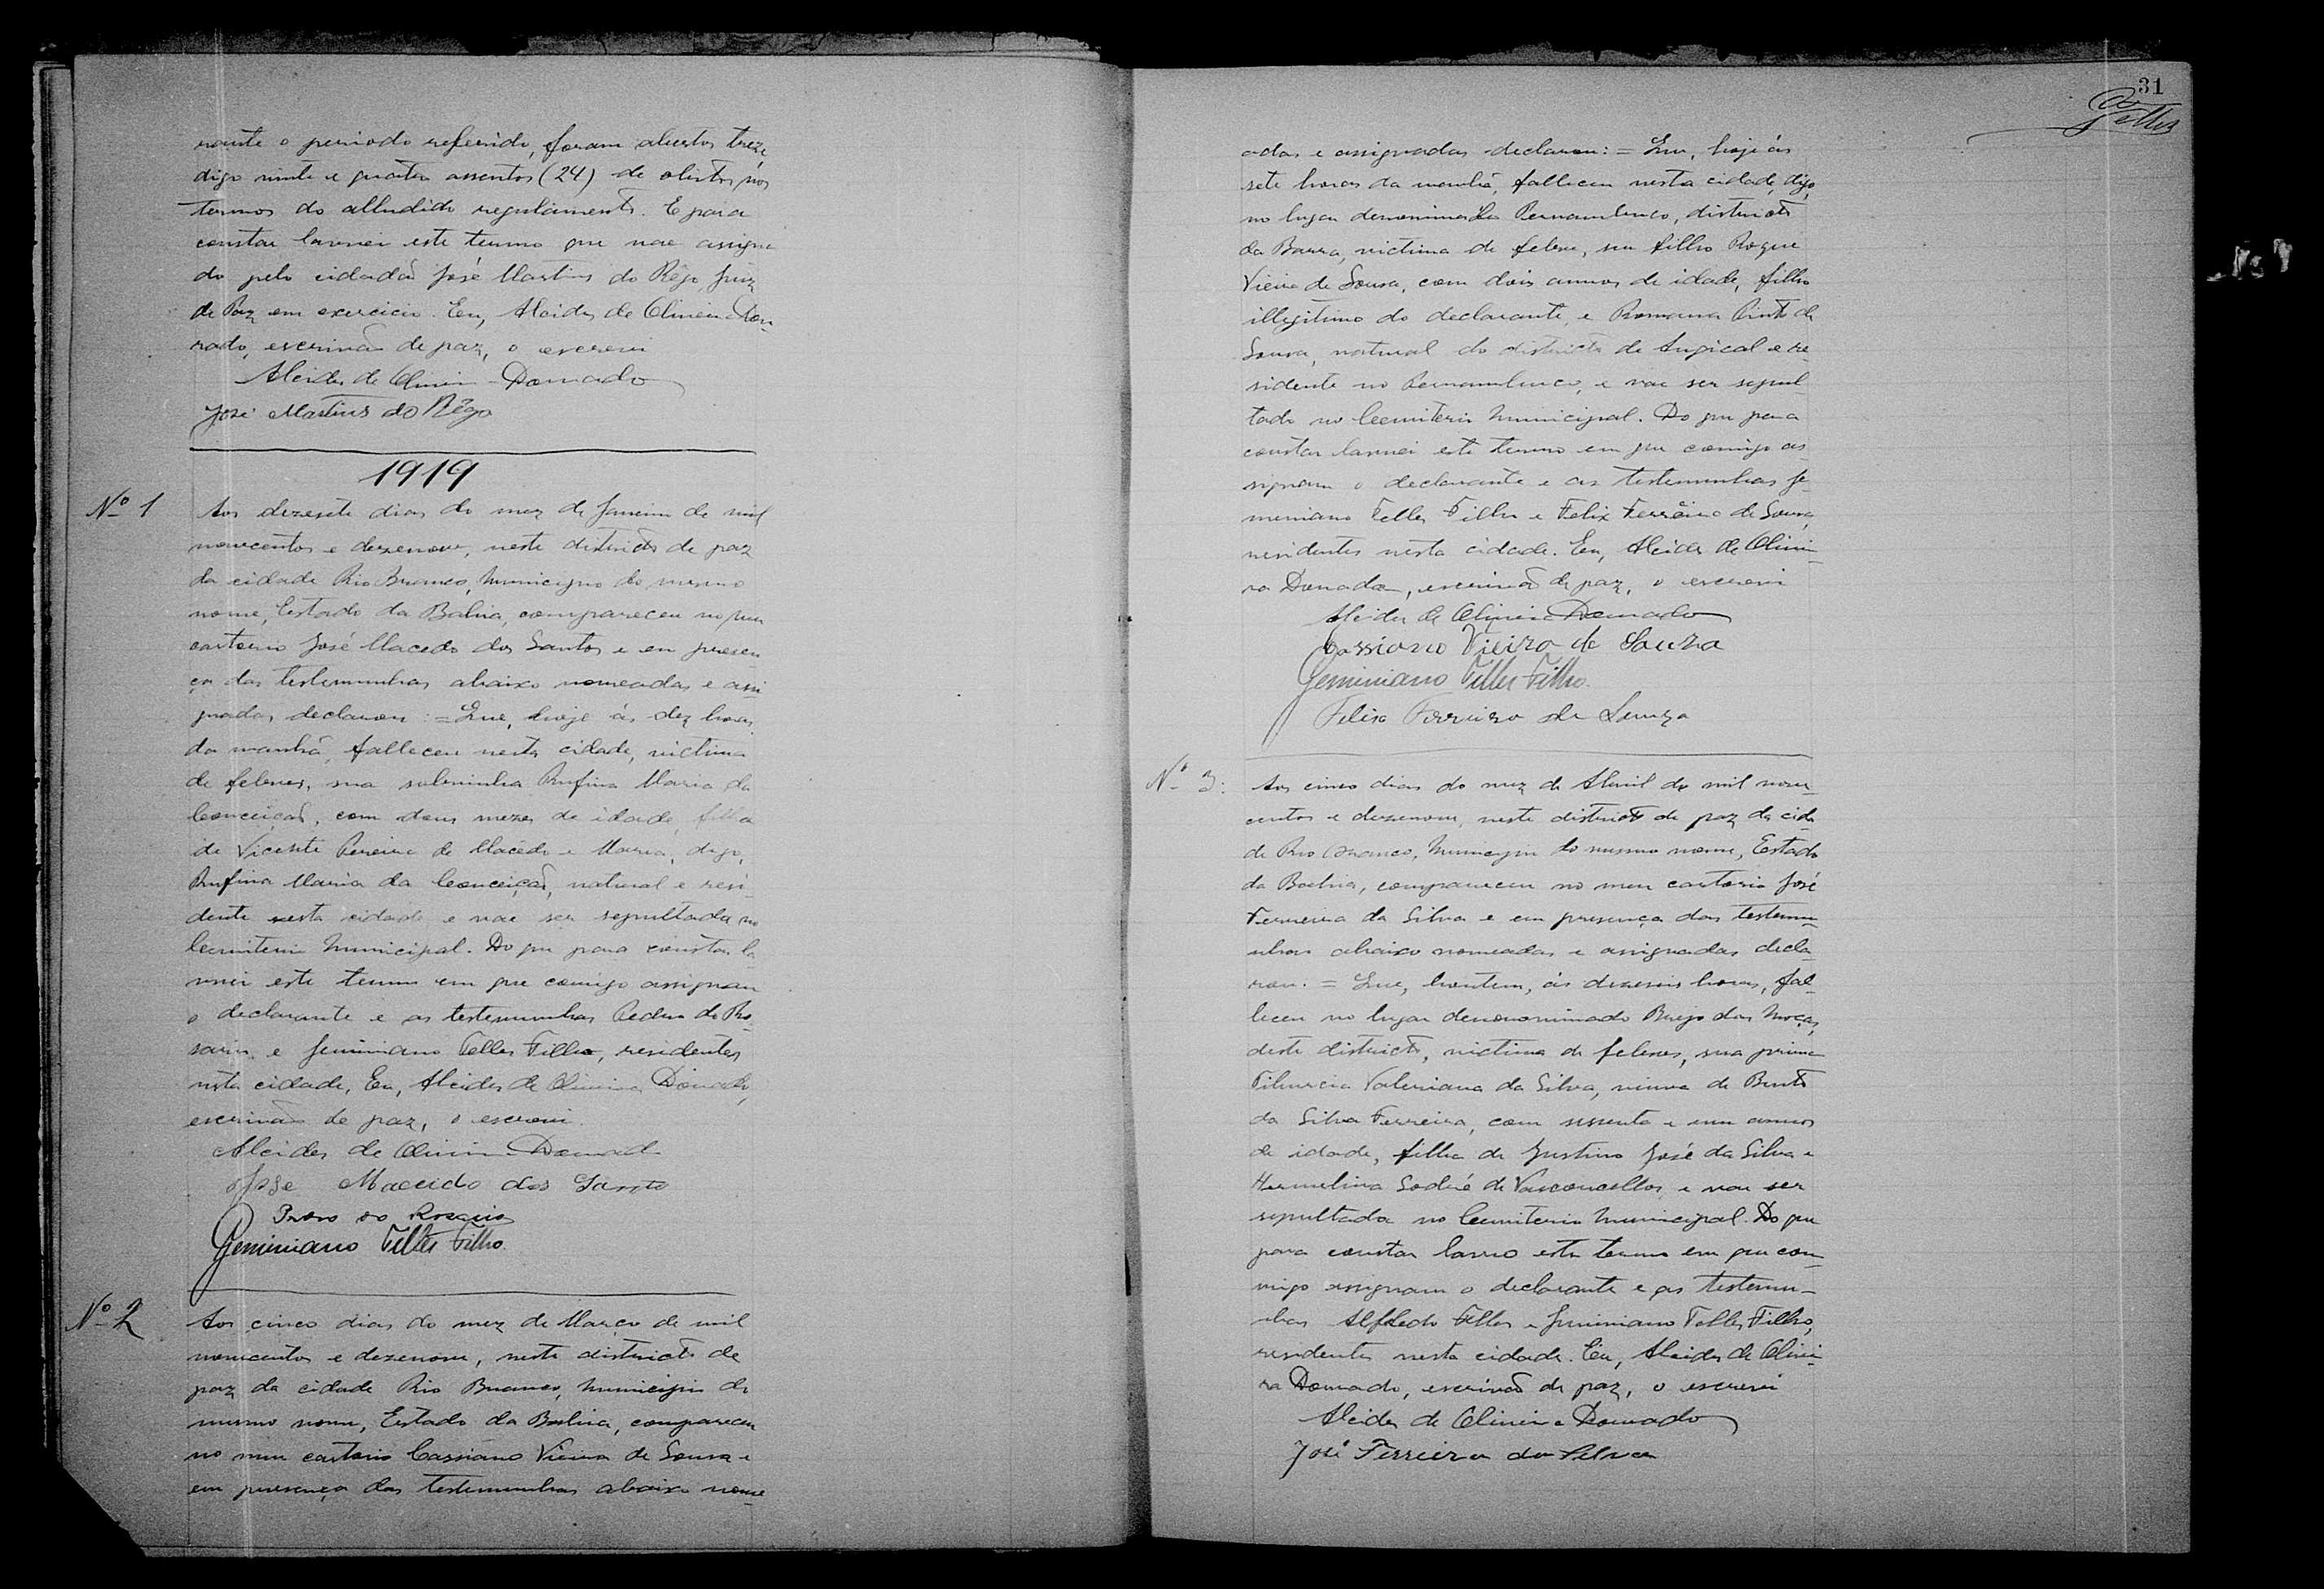 rante o periodo referido, foram abertos treze,
digo vinte e quatro assentos (24) de obitos, nos
termos do alludido regulamento. E para
constar lavrei este termo que vae assigna
do pelo cidadão José Martins do Rêgo, Juiz
de Paz em exercicio. Eu, Alcides de Oliveira Dou
rado, escrivão de paz, o escrevi
Alcides de Oliveira Dourado
José Martins do Rêgo
1919
Nº 1
Aos dezesete dias do mez de Janeiro de mil
novecentos e dezenove, neste districto de paz
da cidade Rio Branco, Municipio do mesmo
nome, Estado da Bahia, compareceu no meu
cartorio José Macedo dos Santos e em presen
ça das testemunhas abaixo nomeadas e assi
gnadas, declarou: = Que, hoje ás dez horas
da manhã, falleceu nesta cidade, victima
de febres, sua sobrinha Rufina Maria da
Conceição, com dous mezes de idade, filha
de Vicente Pereira de Macêdo e Maria, digo,
Rufina Maria da Conceição, natural e resi
dente nesta cidade e vae ser sepultada no
Cemiterio Municipal. Do que para constar la
vrei este termo em que comigo assignam
o declarante e as testemunhas Pedro do Ro
sario e Geminiano Telles Filho, residentes
nesta cidade. Eu, Alcides de Oliveira Dourado,
escrivão de paz, o escrevi.
Alcides de Oliveira Dourado
José Macedo dos Santos
Pedro do Rosario
Geminiano Telles Filho.
Nº 2
Aos cinco dias do mez de Março de mil
novecentos e dezenove, neste districto de
paz da cidade Rio Branco, Municipio do
mesmo nome, Estado da Bahia, compareceu
no meu cartorio Cassiano Vieira de Sousa e
em presença das testemunhas abaixo nome
31
Telles
adas e assignadas declarou: = Que, hoje ás
sete horas da manhã, falleceu nesta cidade, digo,
no lugar denominado Pernambuco, districto
da Barra, victima de febre, seu filho Roque
Vieira de Sousa, com dois annos de idade, filho
illegitimo do declarante e Romana Pinto de
Sousa, natural do districto de Angical e re
sidente no Pernambuco, e vae ser sepul
tado no Cemiterio Municipal. Do que para
constar lavrei este termo em que comigo as
signam o declarante e as testemunhas Ge
meniano Telles Filho e Felix Ferreira de Sousa,
residentes nesta cidade. Eu, Alcides de Olivei
ra Dourado, escrivão de paz, o escrevi
Alcides de Oliveira Dourado
Cassiano Vieira de Souza
Geminiano Telles Filho.
Felix Ferreira de Souza
Nº 3:
Aos cinco dias do mez de Abril de mil nove
centos e dezenove, neste districto de paz da cida
de Rio Branco, Municipio do mesmo nome, Estado
da Bahia, compareceu no meu cartorio José
Ferreira da Silva e em presença das testemu
nhas abaixo nomeadas e assignadas decla
rou: = Que, hontem, ás dezeseis horas, fal
leceu no lugar denonominado Brejo das Moças,
deste districto, victima de febres, sua prima
Valeriana da Silva, viuva de Bento
da Silva Ferreira, com sessenta e um annos
de idade, filha de Justino José da Silva e
Hermelina Sodré de Vasconcellos e vae ser
sepultada no Cemiterio Municipal. Do que
para constar lavro este termo em que com
migo assignam o declarante e as testemu
nhas Alfredo Telles e Geminiano Telles Filho,
residentes nesta cidade. Eu, Alcides de Olivei
ra Dourado, escrivão de paz, o escrevi
Alcides de Oliveira Dourado
José Ferreira da Silva